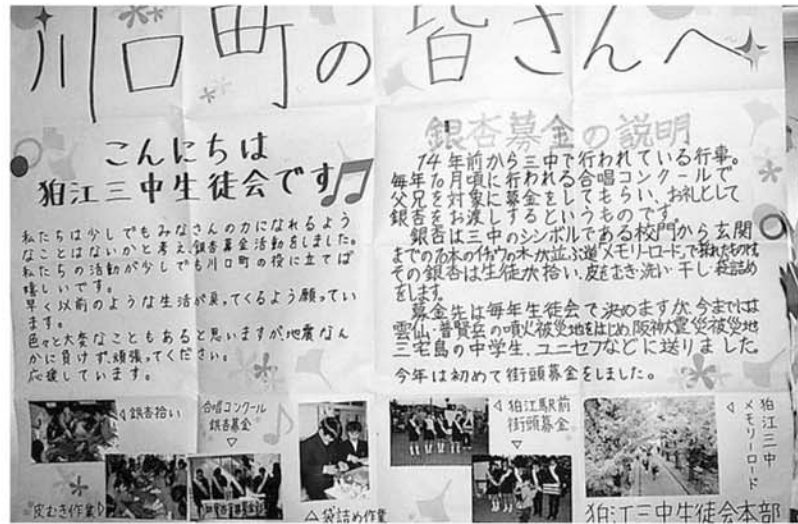 川口町の皆さんへ
こんにちは
狛江三中生徒会です
私たちは少しでもみなさんの力になれるよう
なことはないかと考え、銀杏募金活動をしました。
私たちの活動が少しでも川口町の役に立てば
嬉しいです。
早く以前のような生活が戻ってくるよう願ってい
ます。
色々と大変なこともあると思いますが地震なん
かに負けず、頑張ってください。
応援しています。
銀杏募金の説明
14年前から三中で行われている行事。
毎年10月頃に行われる合唱コンクールで
父兄を対象に募金をしてもらい、お礼として
銀杏をお渡しするというものです。
銀杏は三中のシンボルである校門から玄関
までの本のイチョウの木が並ぶ道"メモリーロード"で採れたものです
その銀杏は生徒が拾い、皮をむき・洗い・干し・袋詰め
をします。
募金先は毎年生徒会で決めますが、今までには
雲仙・普賢岳の噴火被災地をはじめ、阪神大震災被災地
三宅島の中学生、ユニセフなどに送りました。
今年は初めて街頭募金をしました。
銀杏拾い
合唱コンクール
銀杏募金
皮むき作業
袋詰め作業
狛江駅前
街頭募金
狛江三中
メモリーロード
狛江三中生徒会本部